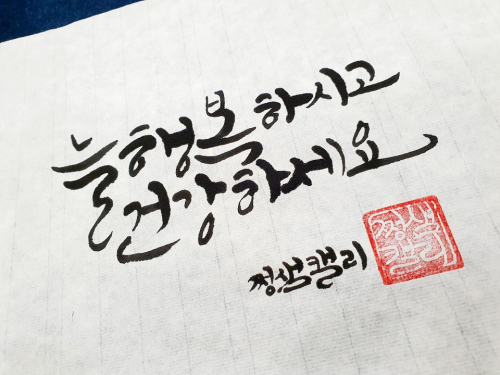 늘 행복하시고
건강하세요
쩡샘캘리
쩡샘
캘리